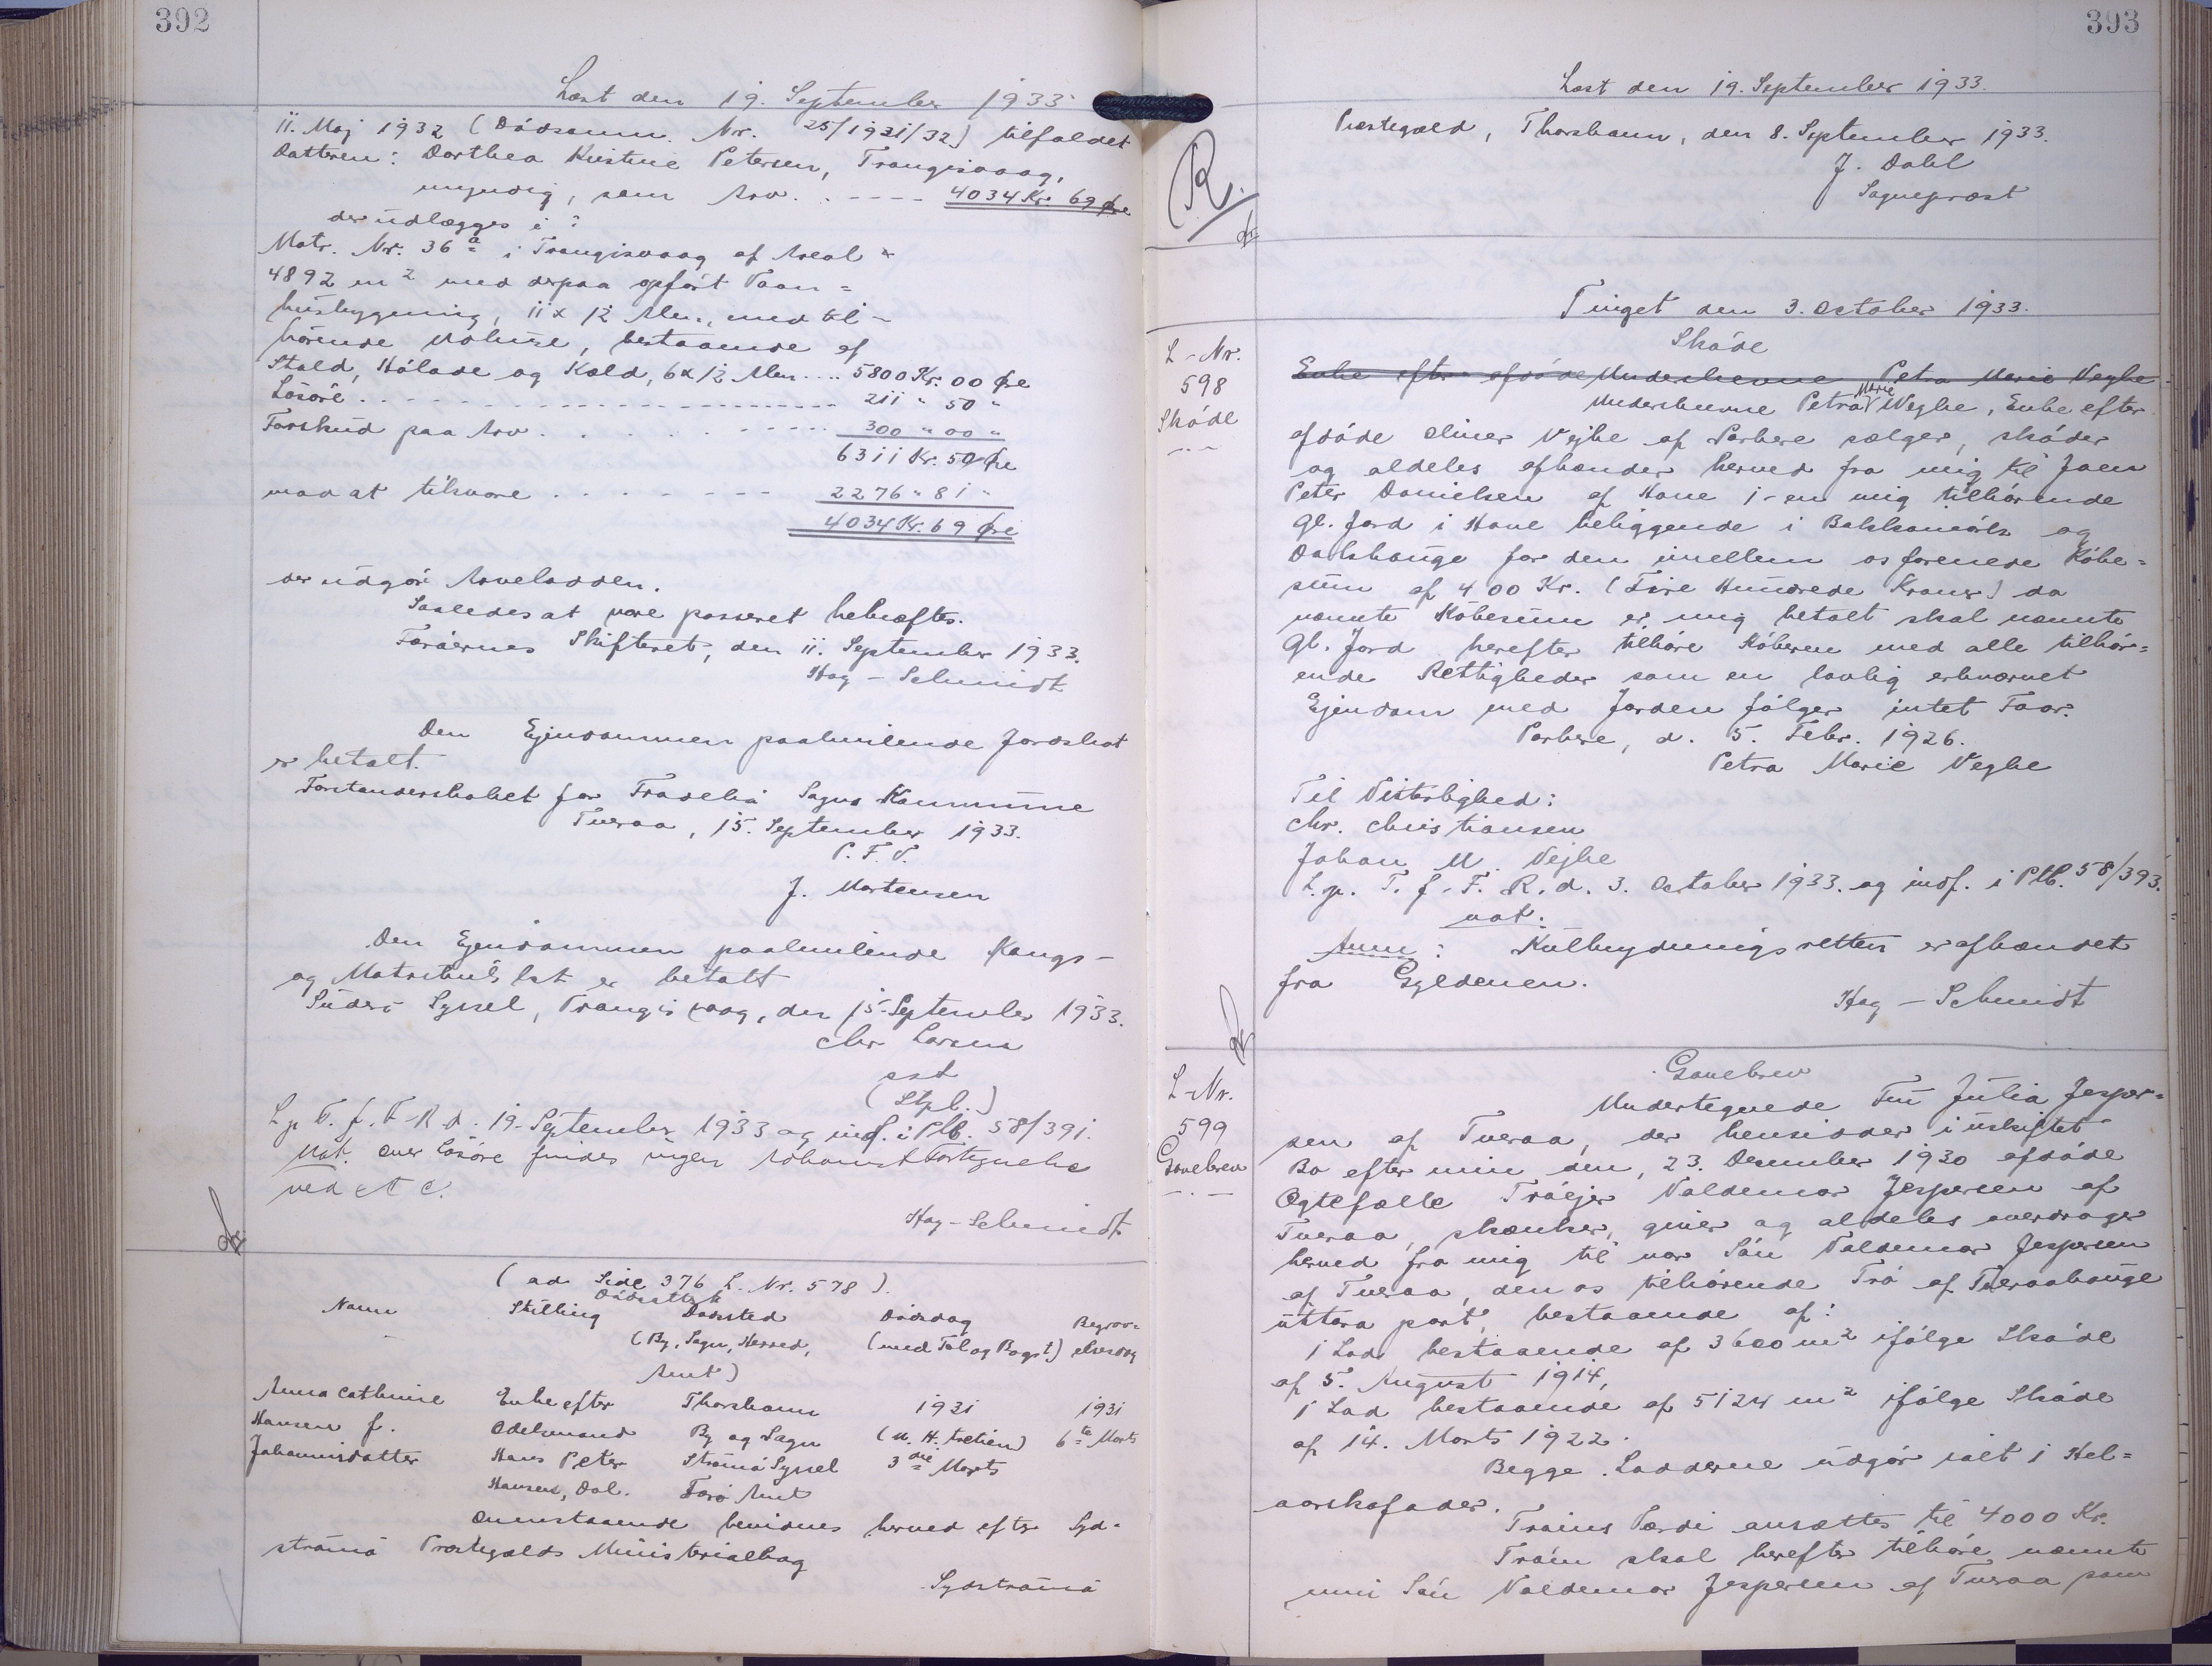 392
Læst den 19. September 1933
11. Maj 1932 (Dødsanm. Nr. 25/1931/32) tilfaldet
Datteren: Dorthea Kristine Petersen, Trangisvaag,
myndig, som Arv. . ---- 4034 Kr. 69 Øre
der udlægges i:
Matr. Nr. 36 a i Trangisvaag af Areal
4892 m2 med derpaa opført Vaan=
husbygning, 11 x 12 Alen, med til-
hørende Udhuse, bestaaende af
Stald, Hølade og Kæld, 6 x 12 Alen .... 5800 Kr. 00 Øre
Løsøre . . - - - - - - - - - - - 211 " 50 "
Forskud paa Arv . . . . . - - - - - 300 " 00 "
6311 Kr. 50 Øre
mod at tilsvare . . . . . - - - 2276 " 81 "
4034 Kr. 69 Øre
der udgør Arvelodden.
Saaledes at være passeret bekræftes.
Færøernes Skifteret, den 11. September 1933.
Hag-Schmidt
Den Ejendommen paahvilende Jordskat
er betalt.
Forstanderskabet for Froðebø Sogns Kommune
Tveraa, 15. September 1933.
P. F. V.
J. Mortensen
Den Ejendommen paahvilende Kongs-
og Matrikulskat er betalt
Suderø Syssel, Trangisvaag, den 15. September 1933.
Chr Larsen
sst
(Stpl.)
L. p. T. f. F. R. d. 19. September 1933 og indf. i Ptb. 58/391.
Not. over Løsøre findes ingen Adkomst fortegnelse
ved
Hag-Schmidt
(ad Side 376 L. Nr. 578).
Dødsattest
Navn Stilling Dødssted Dødsdag Begrav=
(By, Sogn, Herred, (med Tal og Bogst.) elsesdag
Amt)
Anna Cathrine Enke efter Thorshavn 1931 1931
Hansen f. Odelsmand By og Sogn (N. H. tretien) 6te Marts
Johannisdatter Hans Peter Strømø Syssel 3die Marts
Hansen, Dal. Færø Amt
Ovenstaaende bevidnes herved efter Syd=
strømø Præstegælds Ministerialbog
Sydstrømø
393
Læst den 19. September 1933.
Præstegæld, Thorshavn, den 8. September 1933.
J. Dahl
Sognepræst
R.
Tinget den 3. October 1933.
L-Nr.
598
Skøde
Skøde
Enke efter afdøde Underskrevne Petra Marie Vejhe
Underskrevne Petra Marie Vejhe, Enke efter
afdøde Elmer Vejhe af Porkere sælger, skøder
og aldeles afhænder herved fra mig til Joen
Peter Danielsen af Hove 1- en mig tilhørende
Gl. Jord i Hove beliggende i og
Dalshauge for den imellem os forenede Købe=
sum af 400 Kr. (Fire Hundrede Kroner) da
nævnte Købesum er mig betalt skal nævnte
Gl. Jord herefter tilhøre Køberen med alle tilhør=
ende Rettigheder som en lovlig erhværvet
Ejendom med Jorden følger intet Faar.
Porkere, d. 5. Febr. 1926.
Petra Marie Vejhe
Til Vitterlighed:
Chr. Christiansen
Johan M. Vejhe
L. p. T. f. F. R. d. 3. October 1933. og indf. i Ptb. 58/393.
not.
Anm: Kulbrydningsretten er afhændet
fra Gyldenen.
Hag-Schmidt
L-Nr.
599
Gavebrev
Gavebrev
Undertegnede Fru Julia Jesper=
sen af Tveraa, der hensidder i uskiftet
Bo efter min den, 23. Desember 1930 afdøde
Ægtefælle Trøejer Valdemar Jespersen af
Tveraa, skænker, giver og aldeles overdrager
herved fra mig til vor Søn Valdemar Jespersen
af Tveraa, den os tilhørende Trø af Tveraahauge
uttara part, bestaaende af:
1 Lod bestaaende af 3600 m2 ifølge Skøde
af 5. August 1914,
1 Lod bestaaende af 5124 m2 ifølge Skøde
af 14. Marts 1922.
Begge Lodderne udgør ialt 1 Hel=
aarskofoder.
Trøins Værdi ansættes til 4000 Kr.
Trøin skal herefter tilhøre nævnte
min Søn Valdemar Jespersen af Tveraa som